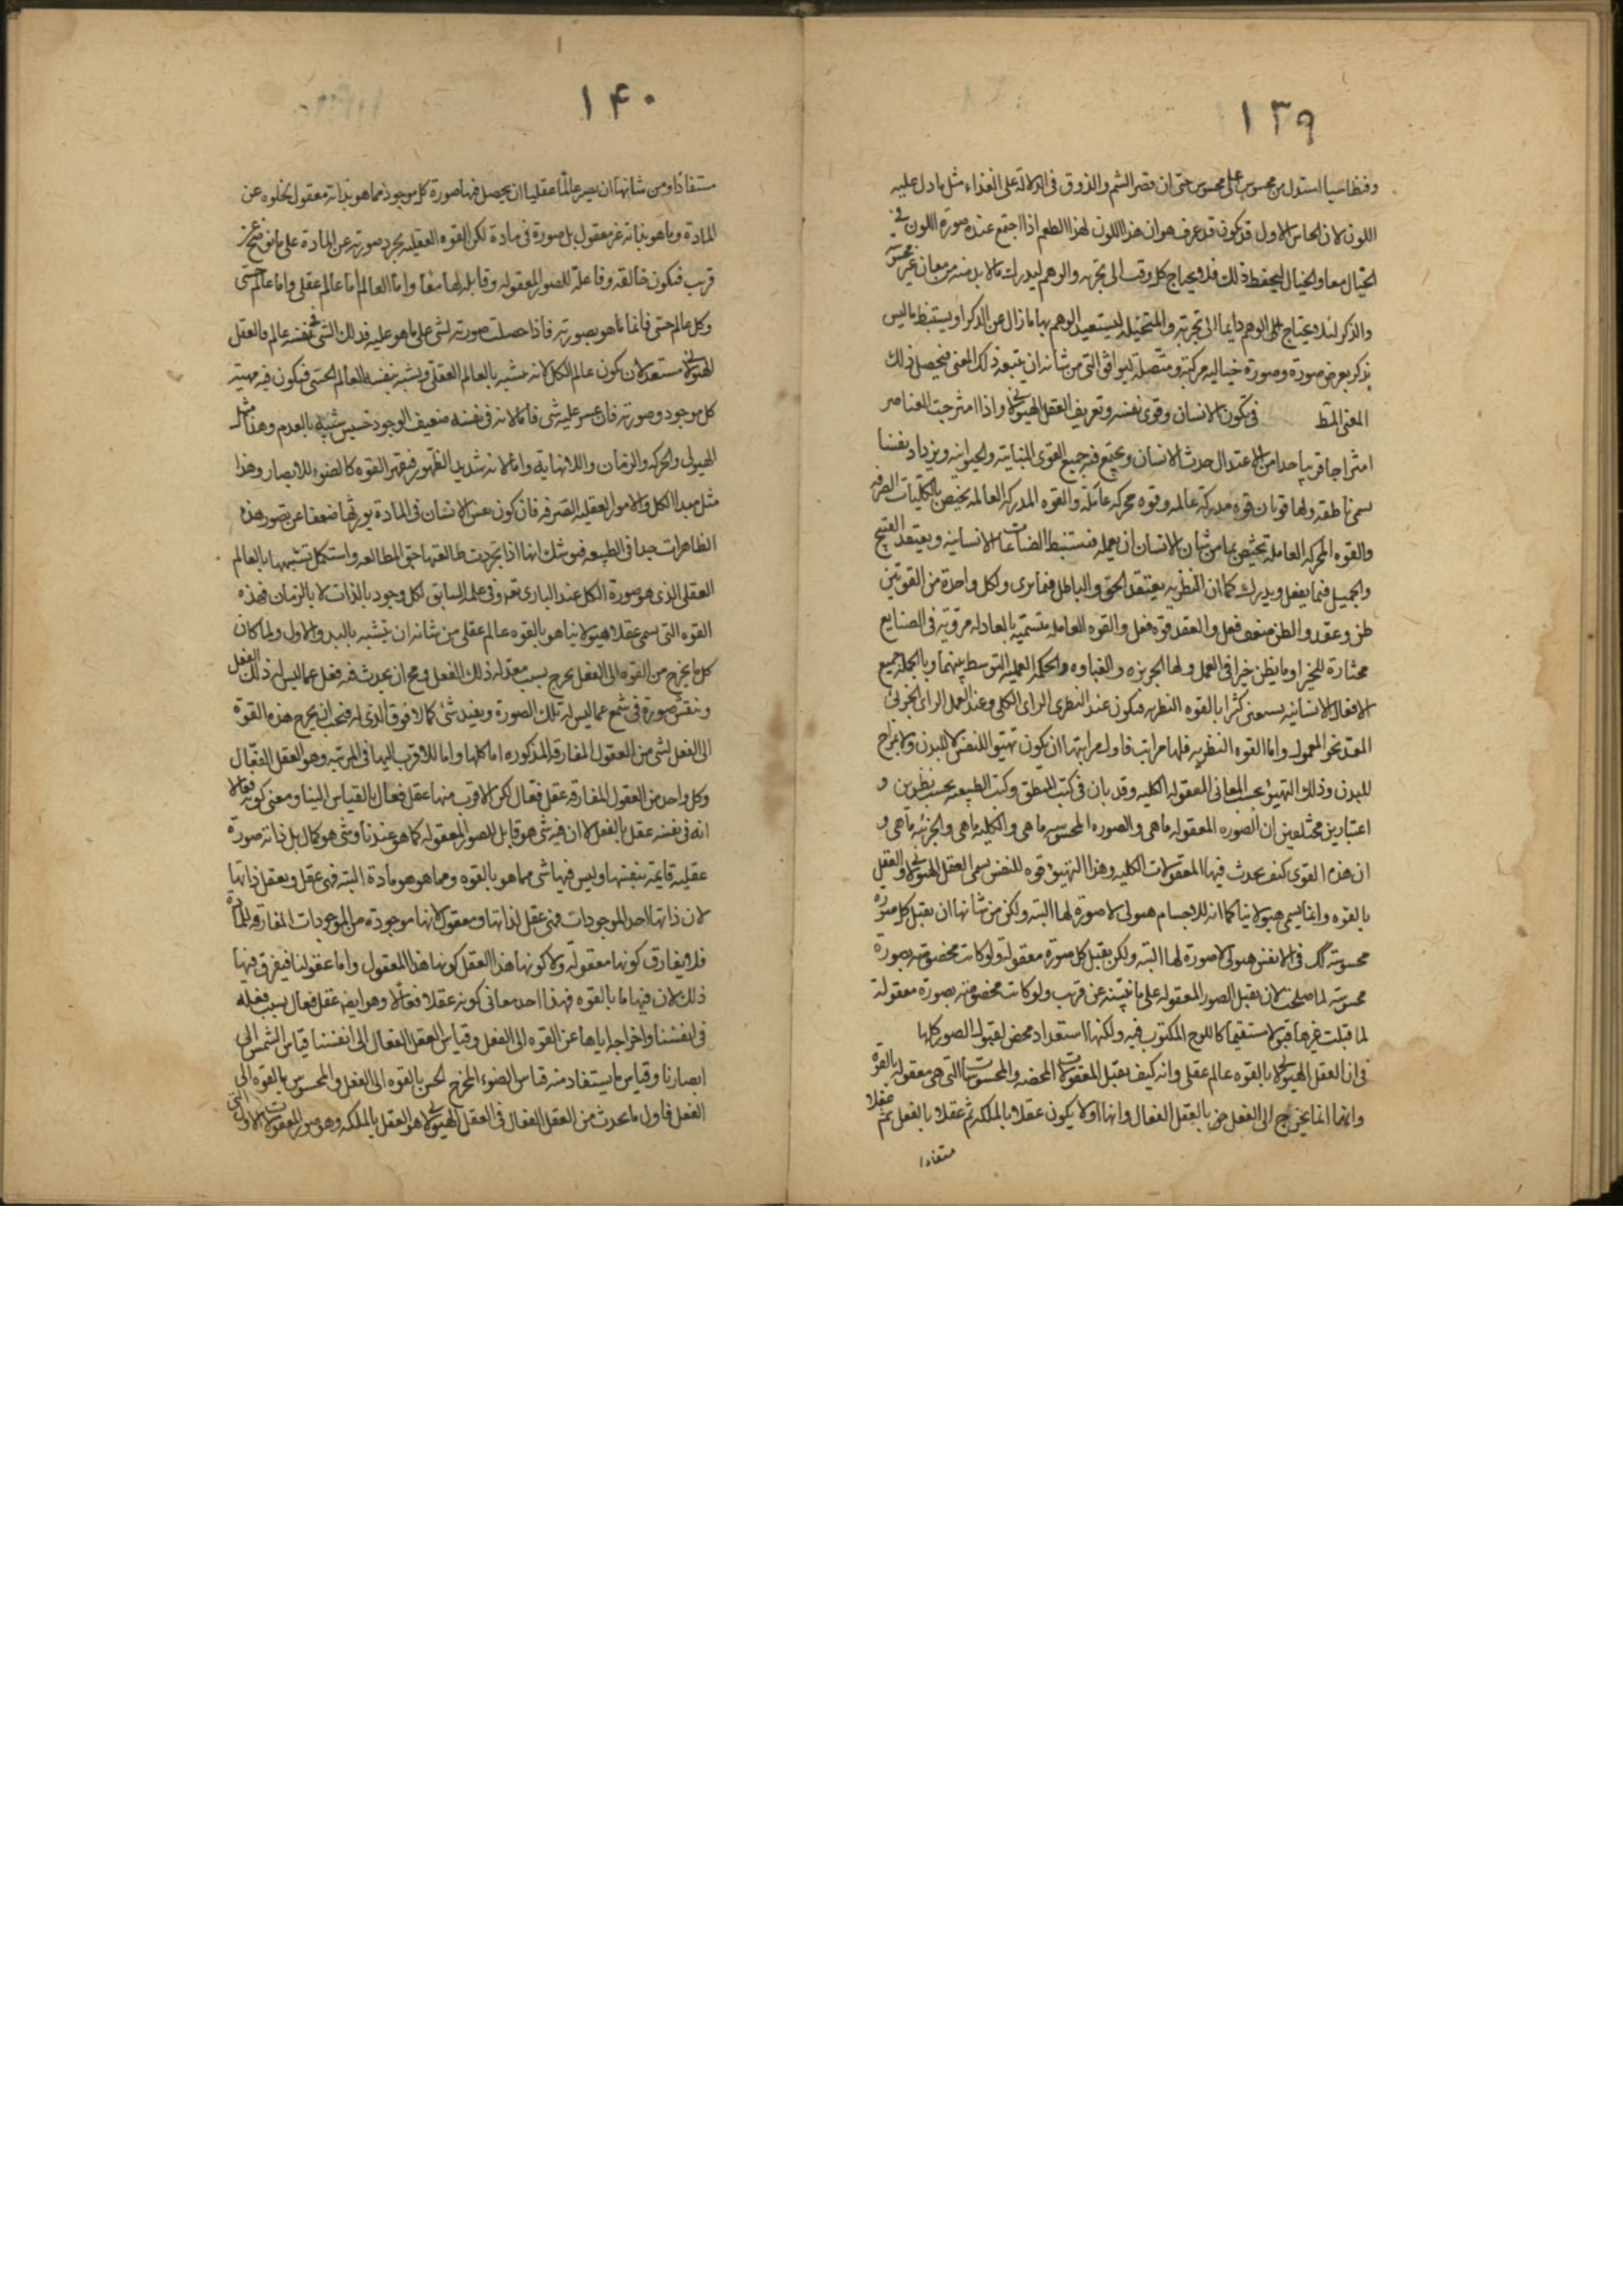 ١٣٩
وفنظاسيا استدل من محسوس على محسوس حتى ان قصر الشم والذوق فى الدلالة على الغذاء مثل ما دل عليه
اللون لان الحاس الاول قد يكون قد عرف هو ان هذا اللون لهذا الطعم اذا اجتمع عنده صورة اللون فى
الخيال معا والخيال ليحفظ ذلك فلا يحتاج كل وقت الى تجربه والوهم ليدرك ما لا بد منه من معان غير محسوسه
والذكر لئلا يحتاج الوهم دايما الى تجربة والمتخيله ليستعيد الوهم بها ما زال عن الذكر او يستنبط ما ليس
يذكر بعرض صورة وصورة خياليه مركبة ومتصله ليوافى التى من شانه ان يتبعه ذلك المعنى فيحصل ذلك
المعنى المتط فى تكون الانسان وقوى نفسه وتعريف العقل الهيولانى واذا امتزجت العناصر
امتزاجا قريبا جدا من الاعتدال حدث الانسان ويجتمع فيه جميع القوى النباتيه والحيوانيه ويزداد نفسا
يسمى ناطقه ولها قوتان قوه مدركة عالمه وقوه محركه عاملة والقوه المدركه العالمه يختص بالكليات الصرفه
والقوه المحركه العامله يختص بما من شان الانسان ان يعمله فيستنبط الصناعات الانسانيه ويعتقد القبيح
والجميل فيما يفعل ويدرك كما ان النظريه يعتقد الحق والباطل فيما يرى ولكل واحدة من القوتين
ظن وعقد والظن ضعف فعل والعقد قوه فعل والقوه العامله يتسميه بالعادله مروية فى الصنايع
مختارة للخير او ما يظن خيرا فى العمل ولها الجربزه والغباوه والحكمه العمليه التوسط بينهما وبالجمله جميع
الافعال الانسانيه يستعين كثيرا بالقوه النظريه فيكون عند النظرى الراى الكلى وعند العملى الراى الجزئى
المعد نحو المعمول واما القوه النظريه فلها مراتب فاول مراتبها ان يكون تهيؤ للنفس لا للبدن ولا لمزاج
للبدن وذلك التهيئو بحسب المعانى المعقوله الكليه وقد بان فى كتب المنطق وكتب الطبيعه بحسب نظرين و
اعتبارين مختلفين ان الصوره المعقوله ما هى والصوره المحسوسه ما هى والكليه ما هى والجزئيه ما هى و
ان هذه القوى كيف يحدث فيها المعقولات الكليه وهذا التهيئو قوه للنفس يسمى العقل الهيولانى والعقل
بالقوه وانما يسمى هيولانيا كما انه للاجسام هيولى لا صورة لها البته ولكن من شانها ان يقبل كل صورة
محسوسة كك فى الانفس هيولى لا صورة لها البته ولكن يقبل كل صورة معقولة ولو كانت مخصوصة بصورة
محسوسه لما صلحت لان يقبل الصور المعقوله على ما نبيّنه عن قريب ولو كانت مخصوصه بصورة معقولة
لما قبلت غيرها قبولا مستقيما كاللوح المكتوب فيه ولكنها استعداد محض لقبول الصور كلها
فى ان العقل الهيولانى بالقوه عالم عقلى وانه كيف يعقل المعقولات المحضه والمحسوسات التى هى معقوله بالقوة
وانها انما يخرج الى الفعل بالعقل الفعال وانها اولا يكون عقلا بالملكه ثم عقلا بالفعل ثم عقلا
مستفادا
١۴٠
مستفادا ومن شانها ان يصير عالما عقليا ان يحصل فيها صورة كل موجود مما هو بذاته معقول لخلوه عن
المادة وما هو بذاته غير معقول بل صورة فى مادة لكن القوه العقليه يجرد صورته عن المادة على ما نوضح عن
قريب فيكون خالقه وفاعله للصور المعقوله وقابله لها معا واما العالم اما عالم عقلى واما عالم حسى
وكل عالم حتى فانما ما هو بصورته فاذا حصلت صورته لشى على ما هو عليه فذلك الشى فى نفسه عالم فالعقل
الهيولانى مستعد لان يكون عالم الكل لانه يتشبه بالعالم العقلى ويشبه بنفسه العالم الحسى فيكون فيه مهيته
كل موجود وصورته فان عسر عليه شى فاما لانه فى نفسه ضعيف الوجود خسيس شبيه بالعدم وهذا مثل
الهيولى والحركه والزمان واللانهاية واما لانه شديد الظهور فيقهر القوه كالضوء للابصار وهذا
مثل مبدا الكل والامور العقليه الصرفه فان كون نفس الانسان فى المادة يورثها ضعفا عن تصور هذه
الظاهرات جدا فى الطبيعه فيوشك انها اذا تجردت طالعتها حق المطالعه واستكمل تشبهها بالعالم
العقلى الذى هو صورة الكل عند البارى تعه وفى علمه السابق لكل وجود بالذات لا بالزمان فهذه
القوه التى يسمى عقلا هيولانيا هو بالقوه عالم عقلى من شانه ان يتشبه بالمبدء الاول ولما كان
كل ما يخرج من القوه الى الفعل يخرج بسبب معد له ذلك الفعل ومح ان يحدث فيه فعل عما ليس له ذلك الفعل
وينقش صورة فى شمع عما ليس له تلك الصورة ويفيد شى كمالا فوق الذى له فيجب ان يخرج هذه القوة
الى الفعل لشى من العقول المفارقه المذكوره اما كلها واما للاقرب اليها فى المرتبه وهو العقل الفعال
وكل واحد من العقول المفارقه عقل فعال لكن الاقرب منها عقل فعال بالقياس الينا ومعنى كونه فعالا
انه فى نفسه عقل بالفعل لا ان فيه شى هو قابل للصور المعقوله كما هو عندنا وشى هو كمال بل ذاته صورة
عقليه قايمه بنفسها وليس فيها شى مما هو بالقوه ومما هو هو مادة البته فهى عقل ويعقل ذاتها
لان ذاتها احد الموجودات فهى عقل لذاتها ومعقول لانها موجودة من الموجودات المفارقه للمادة
فلا يفارق كونها معقوله ولا كونها هذا العقل كونها هذا المعقول واما عقولنا فيفرق فيها
ذلك لان فيها ما بالقوه فهذا احد معانى كونه عقلا فعالا وهو ايضا عقل فعال بسبب فعله
فى انفسنا واخراجه اياها عن القوه الى الفعل وقياس العقل الفعال الى انفسنا قياس الشمس الى
ابصارنا وقياس ما يستفاد منه قياس الضوء المخرج للحس بالقوه الى الفعل والمحسوس بالقوه الى
الفعل فاول ما يحدث من العقل الفعال فى العقل الهيولانى هو العقل بالملكه وهو صور المعقولات الاولى التى